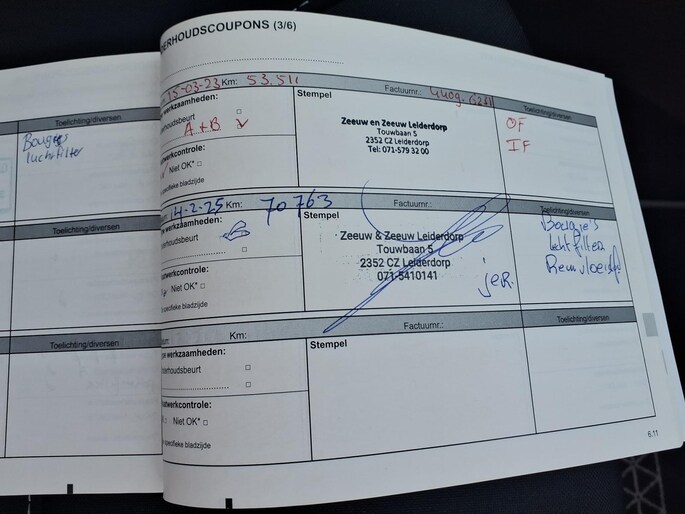 Toelichting/diversen
Bougies
luchtfilter
Toelichting/diversen
Toelichting/diversen
ERHOUDSCOUPONS (3/6)
15-03-23 Km: 53.511 Factuurnr.:
werkzaamheden:
erhoudsbeurt
A+B
twerkcontrole:
Niet OK*
specifieke bladzijde
Stempel
Zeeuw en Zeeuw Leiderdorp
Touwbaan 5
2352 CZ Leiderdorp
Tel: 071-579 32 00
Toelichting/diversen
OF
IF
14-2-25 Km: 70763 Factuurnr.:
werkzaamheden:
erhoudsbeurt
B
twerkcontrole:
Niet OK*
specifieke bladzijde
Stempel
Zeeuw & Zeeuw Leiderdorp
Touwbaan 5
2352 CZ Leiderdorp
071-5410141
Toelichting/diversen
Bougie's
Luchtfilter
Remvloeistof
Km: Factuurnr.:
werkzaamheden:
erhoudsbeurt
twerkcontrole:
Niet OK*
specifieke bladzijde
Stempel
Toelichting/diversen
6.11